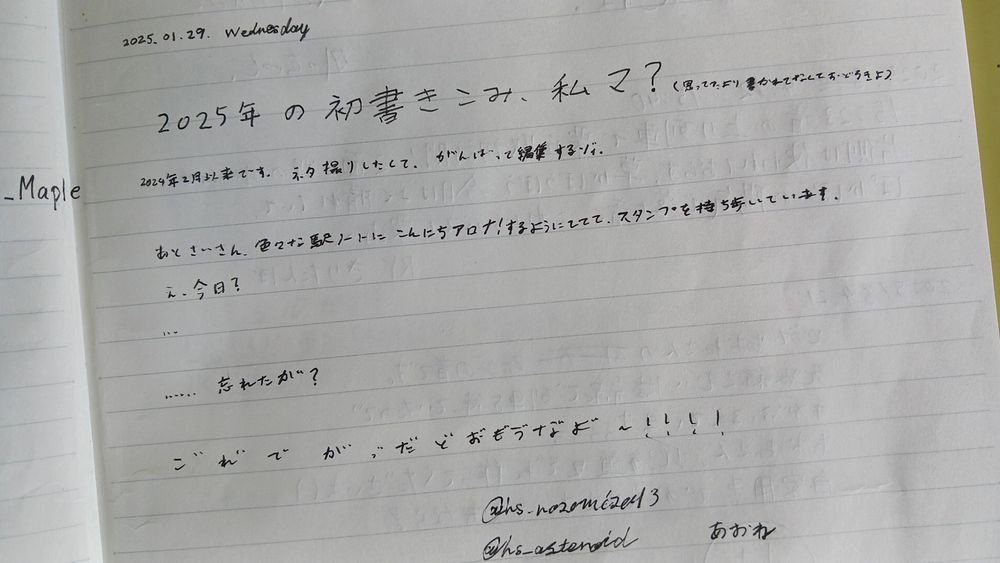 2025.01.29. Wednesday
2025年の初書きこみ、私マ?(思ってたより書かれてなくておどろきよ)
2024年2月以来です。ネタ撮りしたくて。がんばって編集するゾイ。
_Maple
おとさいさん、色々な駅ノートにこんにちアロナ!するようにててて、スタンプを持ち歩いています。
え、今日?
...
...... 忘れたが?
ごれ゛で が゛っだどおもうなよ゛~!!!!
@hs_nozomi2043
@hs_asteroid
あおね